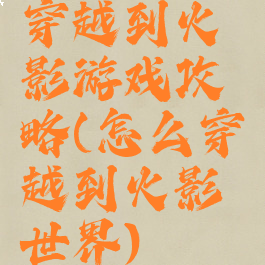 穿越到火
影游戏攻
略(怎么穿
越到火影
世界)